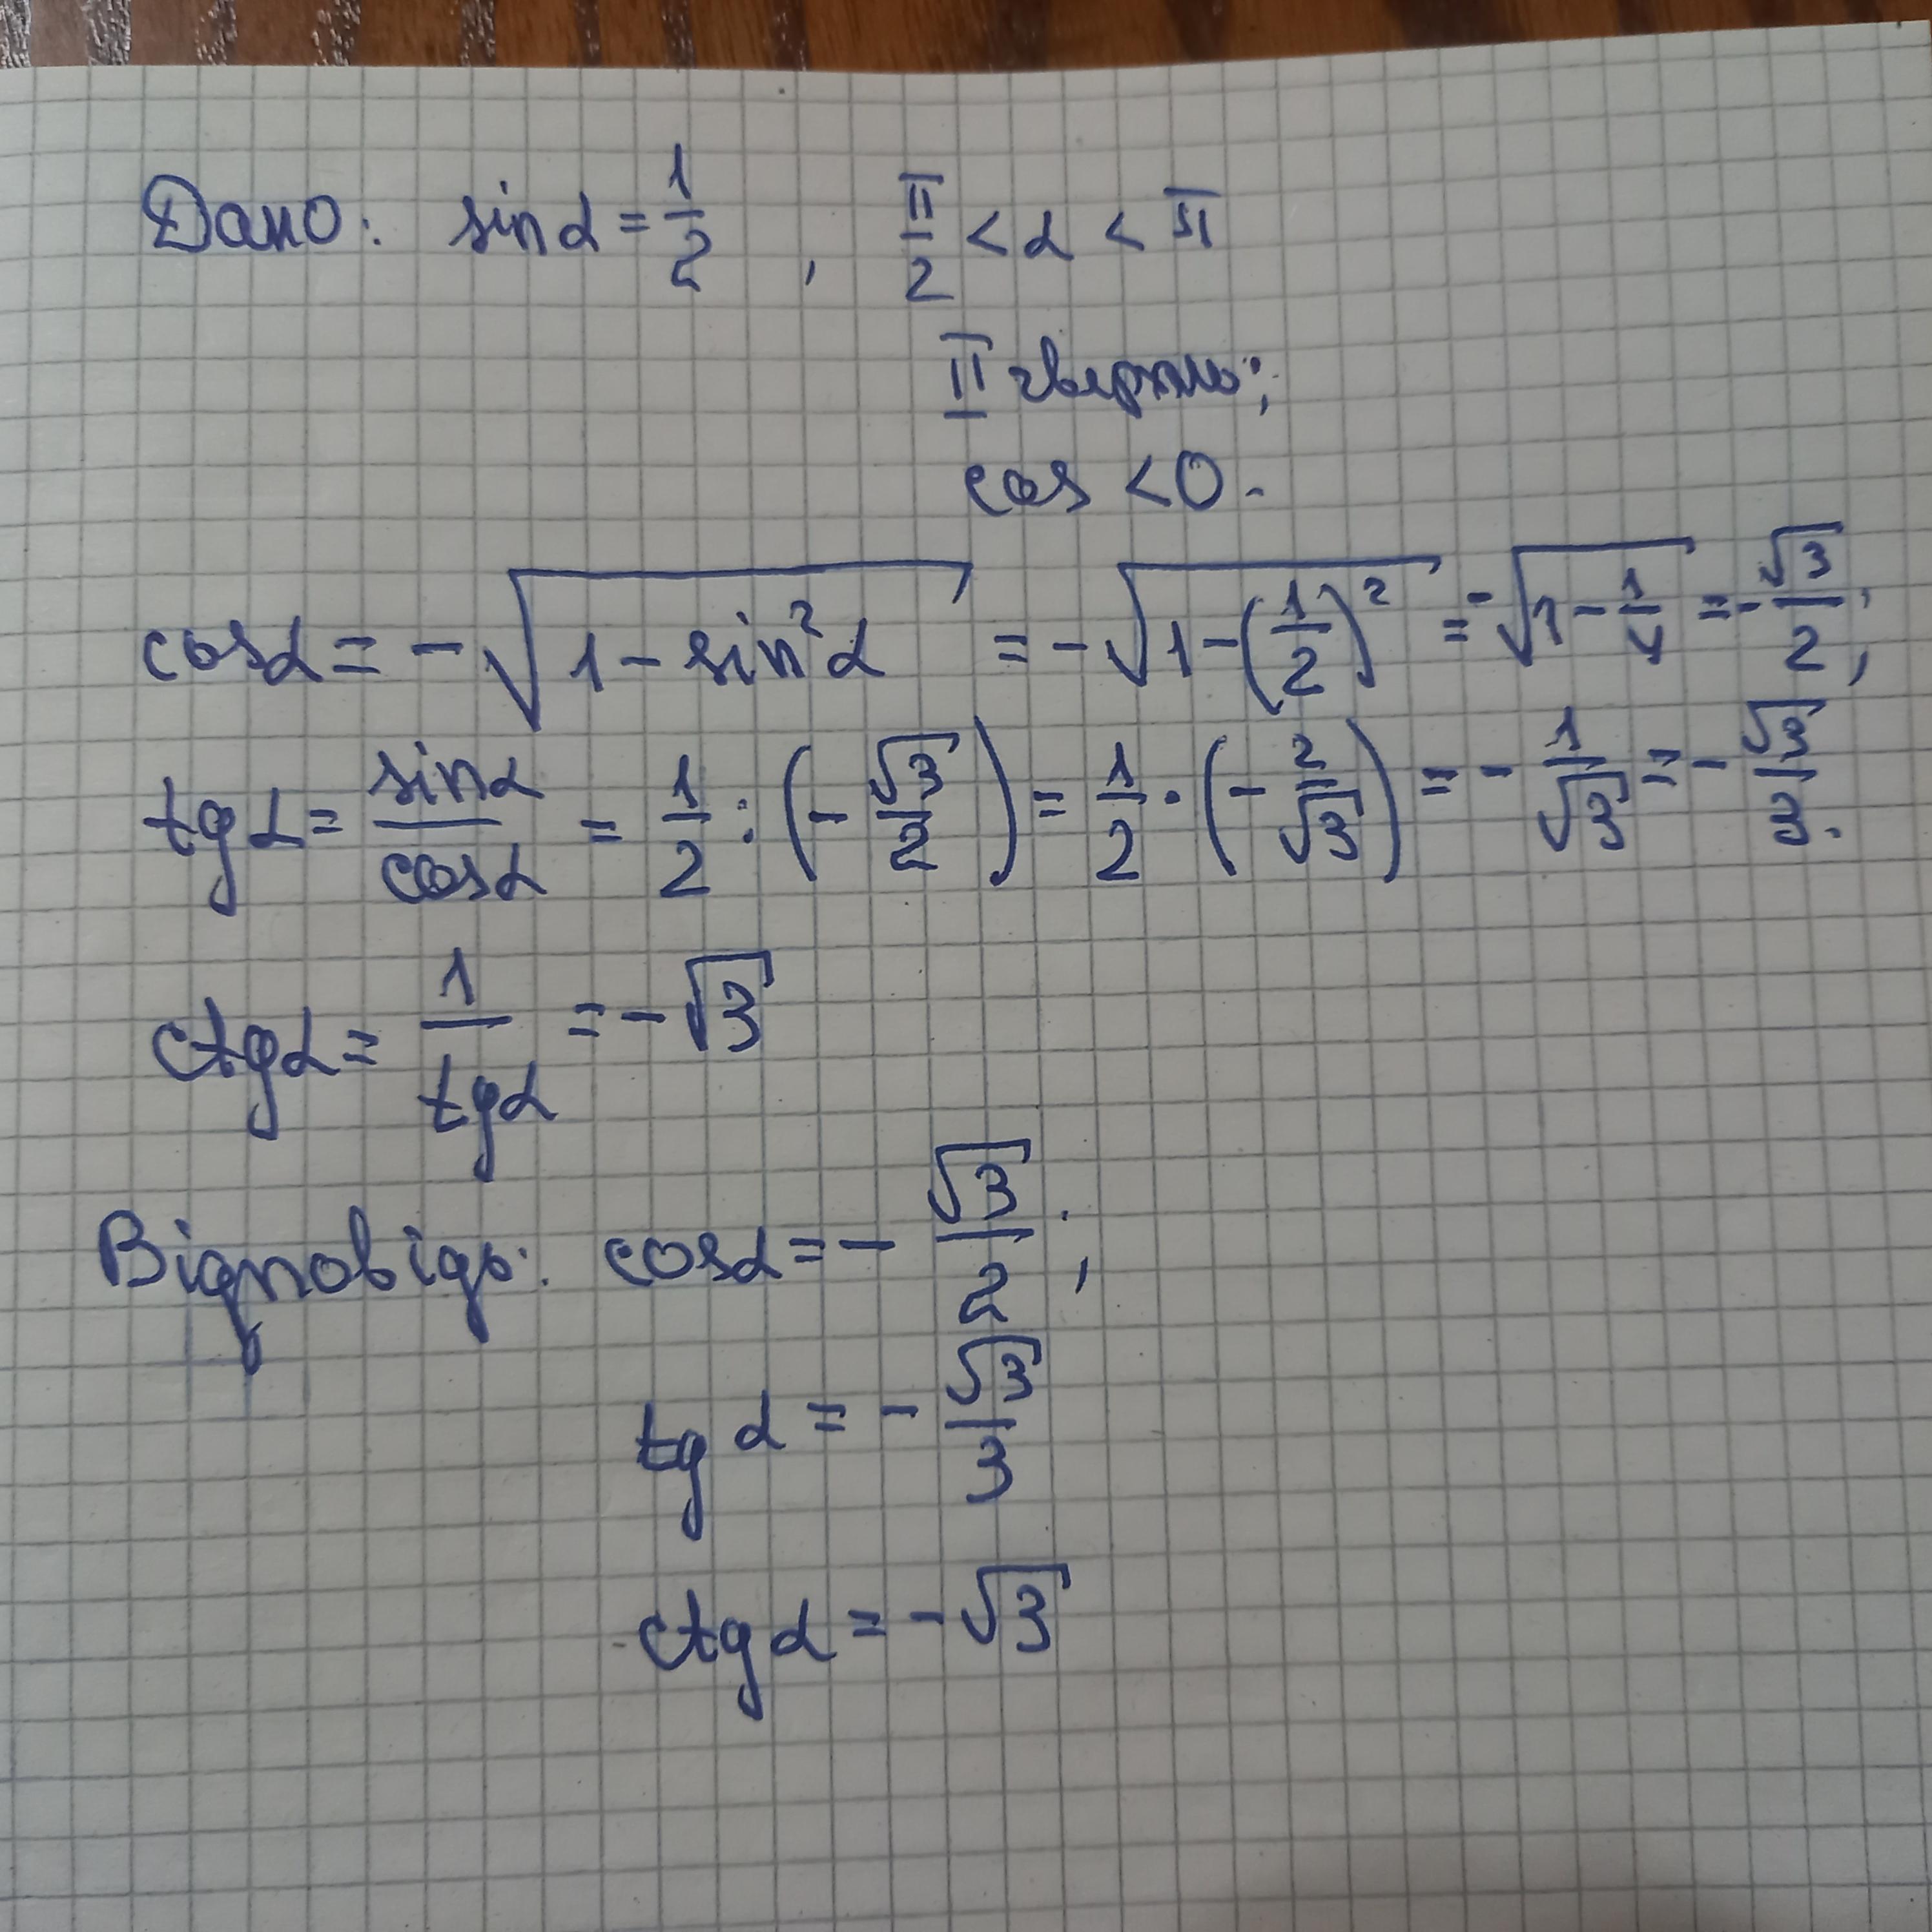 Дано: sin α = 1/2 , π/2 < α < π
II чверть;
cos < 0.
cos α = -√(1 - sin² α) = -√(1 - (1/2)²) = -√(1 - 1/4) = -√3/2;
tg α = sin α/cos α = 1/2 : (-√3/2) = 1/2 · (-2/√3) = -1/√3 = -√3/3.
ctg α = 1/tg α = -√3
Відповідь: cos α = -√3/2;
tg α = -√3/3
ctg α = -√3